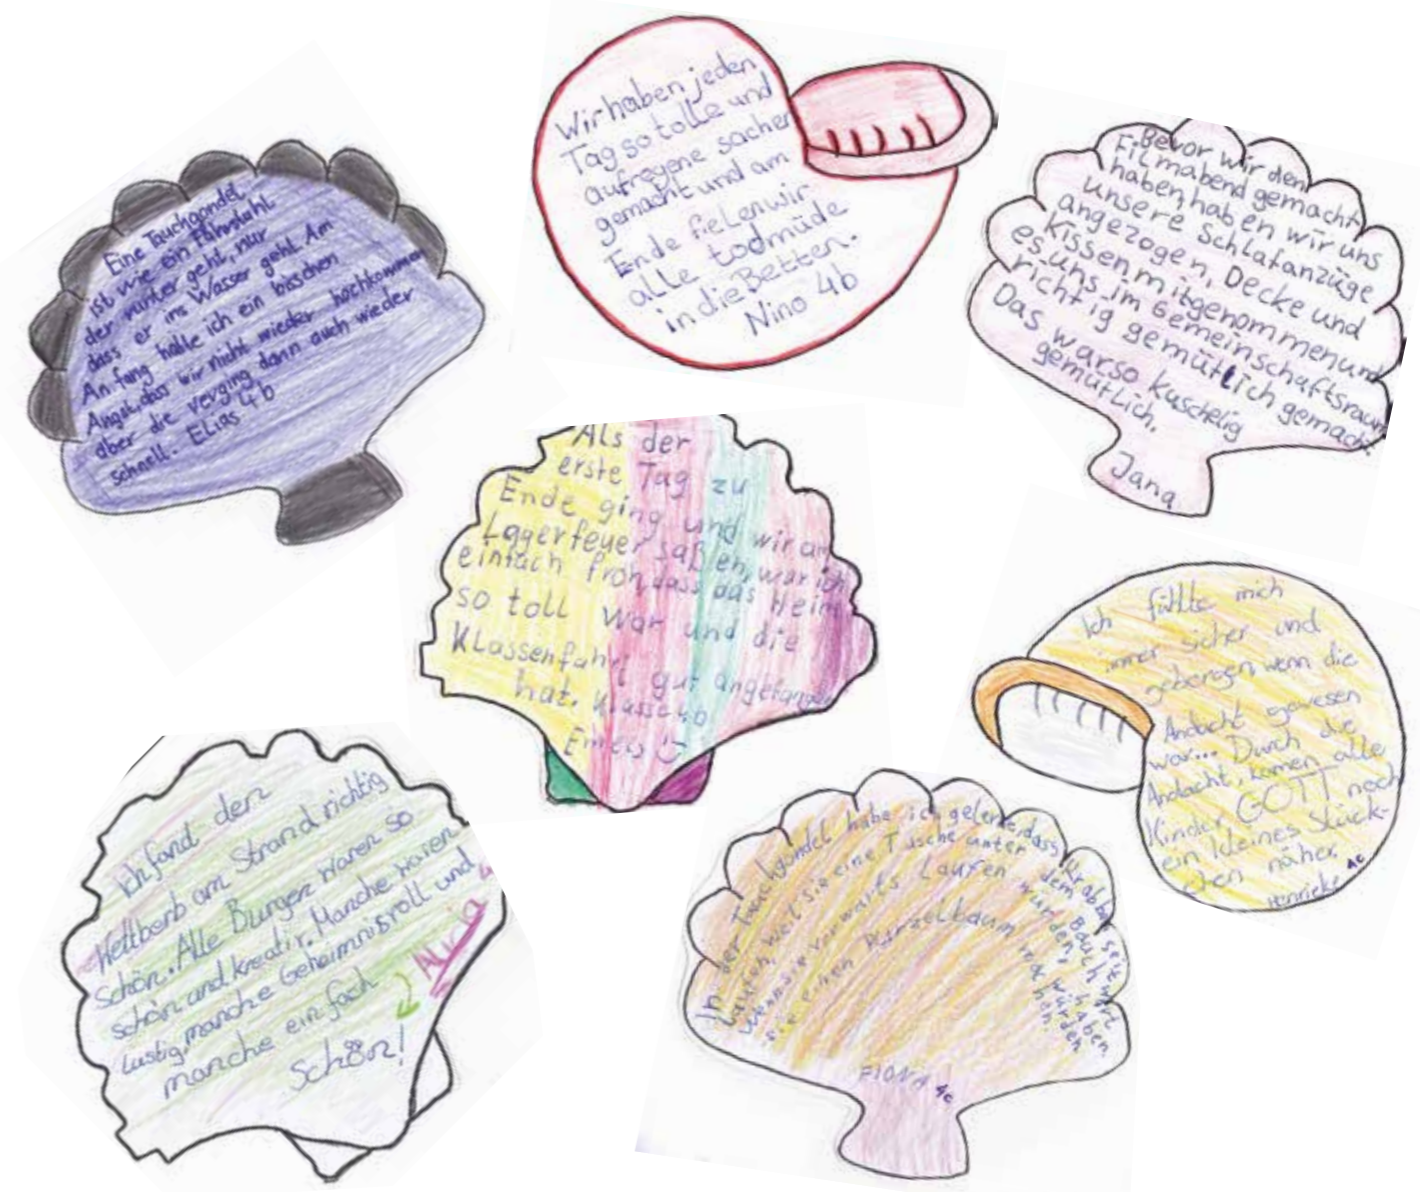 Eine Tauchgondel
ist wie ein Fahrstuhl
der runter geht, nur
dass er ins Wasser geht. Am
Anfang hatte ich ein bisschen
Angst, dass wir nicht wieder hochkommen
aber die verging dann auch wieder
schnell. Elias 4b
Wir haben jeden
Tag so tolle und
aufregene sachen
gemacht und am
Ende fielen wir
alle todmüde
in die Betten.
Nino 4b
Bevor wir den
Filmabend gemacht
haben, haben wir uns
unsere Schlafanzüge
angezogen, Decke und
Kissen mitgenommen und
es uns im Gemeinschaftsraum
richtig gemütlich gemacht.
Das war so kuschelig
gemütlich.
Jana
Als der
erste Tag zu
Ende ging und wir am
Lagerfeuer saßen, war ich
einfach froh, dass das Heim
so toll war und die
Klassenfahrt gut angefangen
hat. Klasse 4b
Ich fühlte mich
immer sicher und
geborgen wenn die
Andacht gewesen
war... Durch die
Andacht, kamen alle
Kinder GOTT noch
ein kleines Stück-
chen näher.
Henrieke 4c
Ich fand den
Wettberb am Strand richtig
schön. Alle Burgen waren so
schön und kreativ. Manche waren
lustig, manche Geheimnisvoll und
manche einfach
Schön!
Alicia
In der Tauchgondel habe ich gelernt, dass Krabben seitwärts
laufen, weil sie eine Tasche unter dem Bauch haben
Wenn sie vorwärts Laufen würden, würden
sie einen Purzelbaum machen.
FIONA 4c